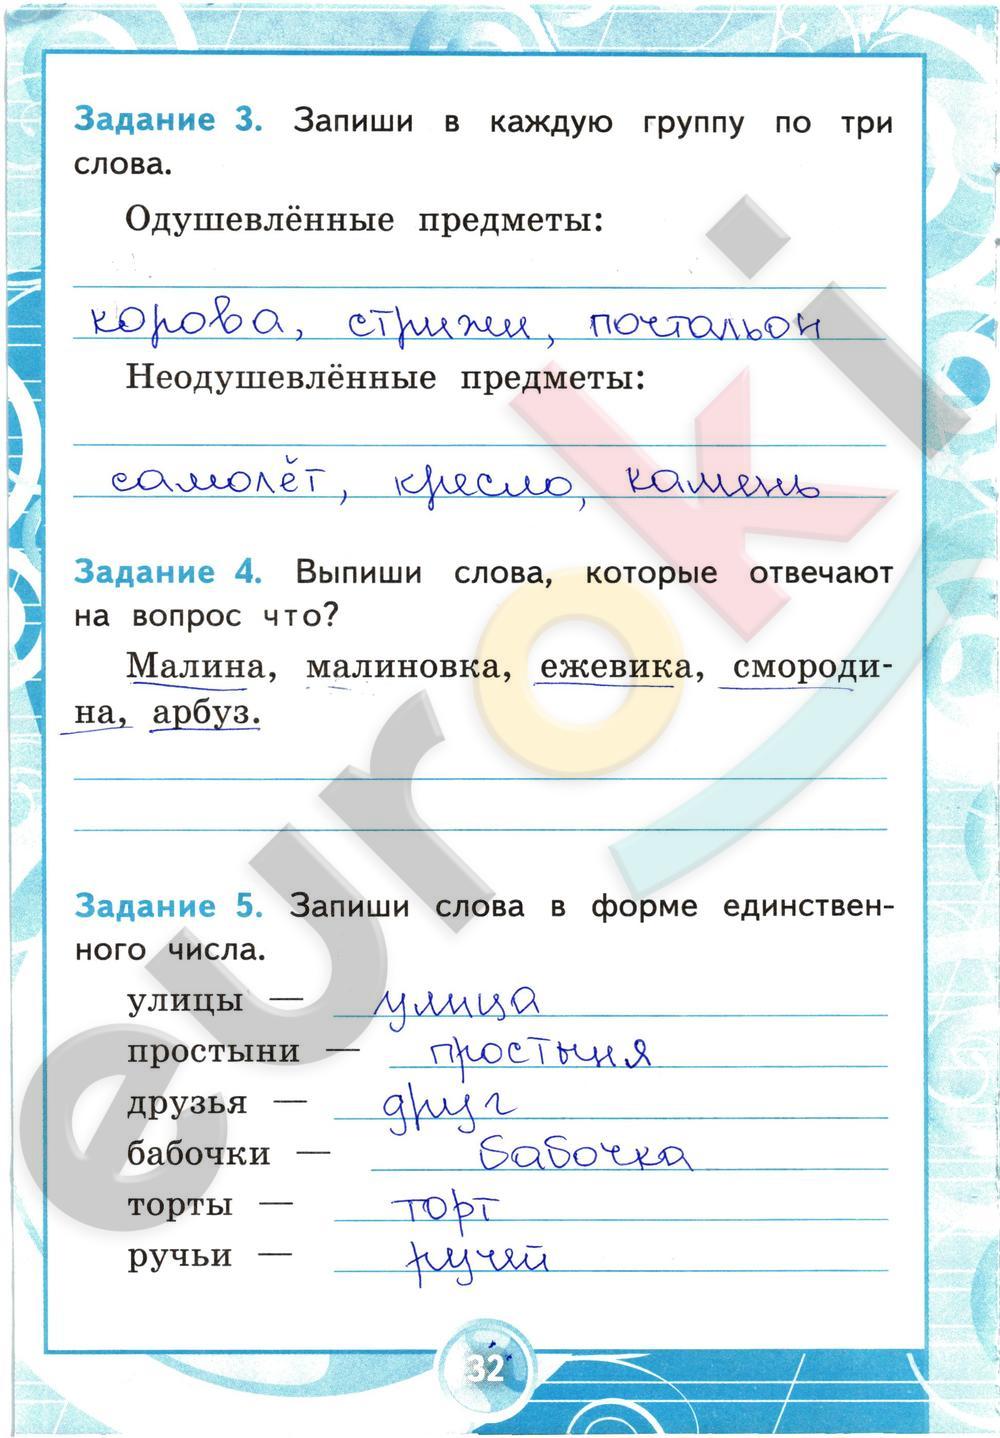 Задание 3. Запиши в каждую группу по три
слова.
Одушевлённые предметы:
корова, стрижи, почтальон
Неодушевлённые предметы:
самолёт, кресло, камень
Задание 4. Выпиши слова, которые отвечают
на вопрос что?
Малина, малиновка, ежевика, смороди-
на, арбуз.
Задание 5. Запиши слова в форме единствен-
ного числа.
улицы — улица
простыни — простыня
друзья — друг
бабочки — бабочка
торты — торт
ручьи — ручей
32
euroki